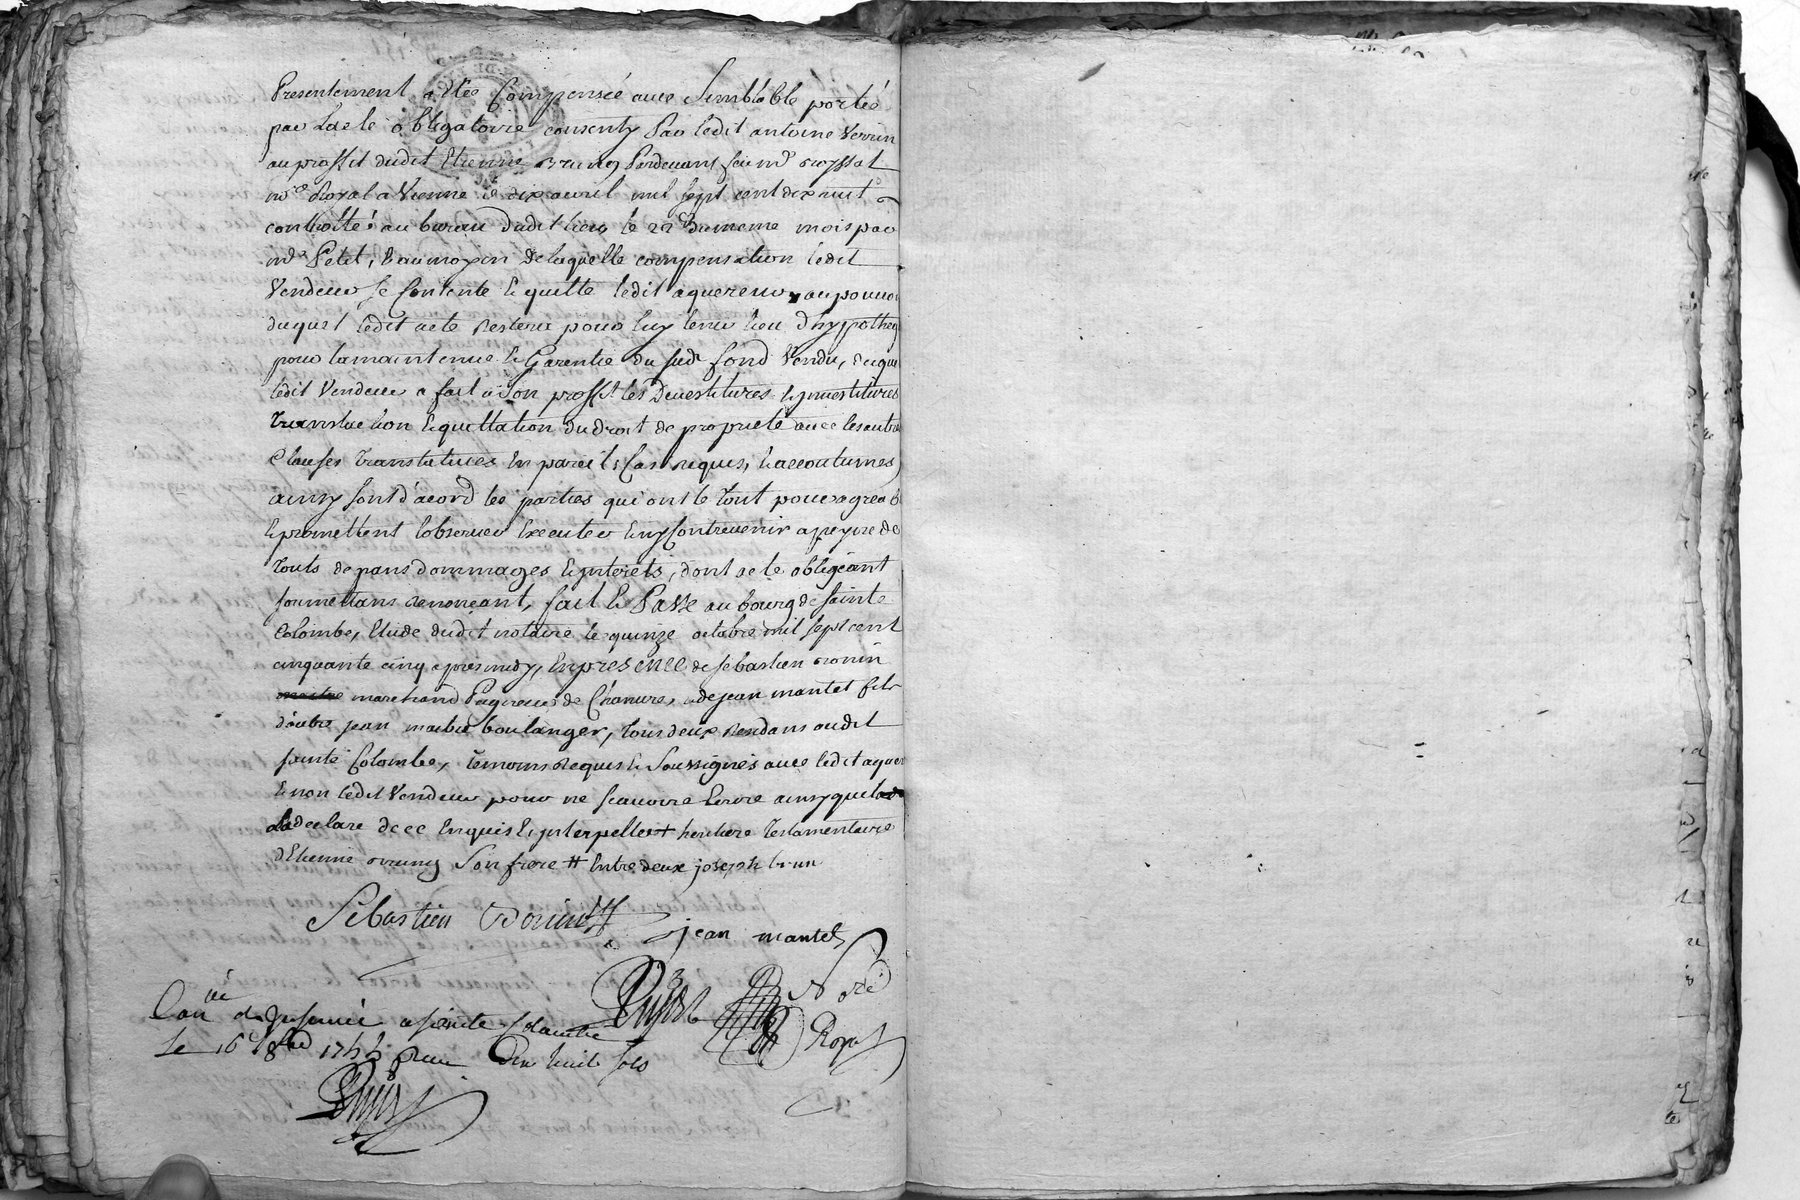 Presentement a Eté Compensée avec Semblable portée
par Lacte obligatoire consenty Par ledit antoine Verrin
au proffit dudit Etienne Pardevant feu md
nre Royal a Vienne le dix avril mil sept cent dix huit
controllé au bureau dudit lieu le 22e du meme mois par
md Petit, Et au moyen de laquelle compensation ledit
Vendeur se Contente & quitte ledit aquereur, au pouvoir
duquel ledit acte Restera pour luy tenir lieu d'hypotheq
pour la maintenue & Garentie du sudt fond Vendu, duquel
ledit Vendeur a fait a Son proffit les Devestitures & jnvestitures
translation & quittation du droit de proprieté avec les autres
Clauses translatives En pareils Cas requis, & accoutumes,
ainsy sont d'acord les parties qui ont le tout pour agreable
& promettent l'observer Executer & ny Contrevenir a peyne de
touts depans dommages & jnterets, dont acte obligeant
soumettans renonçant, fait & Passé au bourg de sainte
Colombe, Etude dudit notaire le quinze octobre mil sept cent
cinquante cinq apres midy, En présence de sébastien
marchand Peigneur de Chanvre, & de jean mantet fils
d'autre jean boulanger, tous deux Residans audit
sainte Colombe, témoins Requis & Soussignés avec ledit aquer
& non ledit Vendeur pour ne scavoire Ecrire ainsy quil
a declare de ce Enquis & jnterpellé + heritiere testamentaire
d'Etienne Son frere # Entre deux joseph brun
Sébastien
jean mantet
Nore
Royal
Con lé & Jnsinué a sainte Colombe
Le 16e 8bre 1755 Reçu dix huit sols